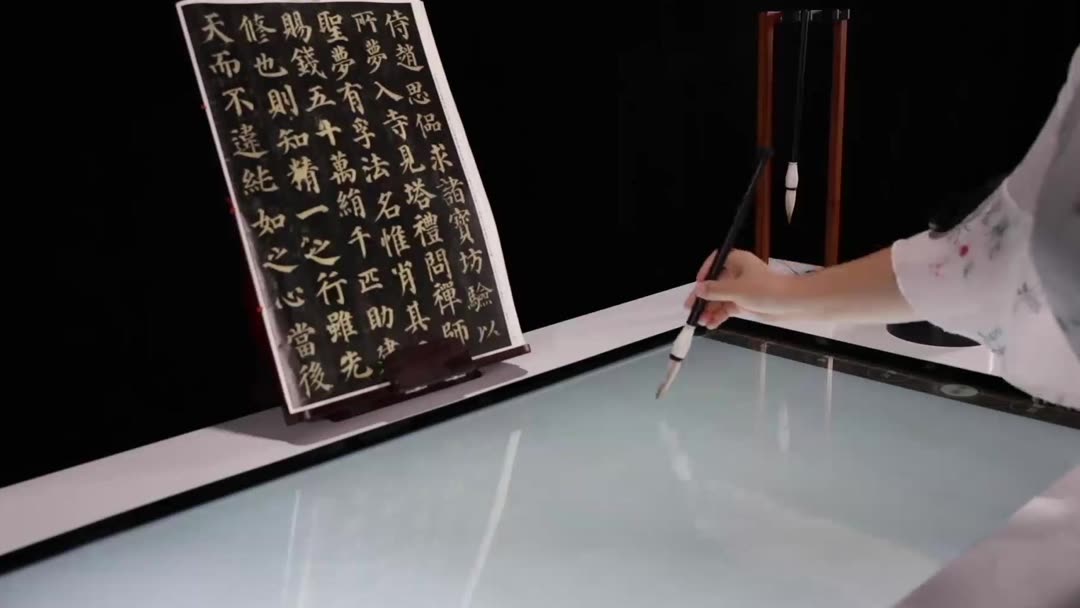 侍趙思侃求諸寶坊驗以
所夢入寺見塔禮問禪師
聖夢有孚法名惟肖其
賜錢五十萬絹千匹助建
修也則知精一之行雖先
天而不違純如之心當後